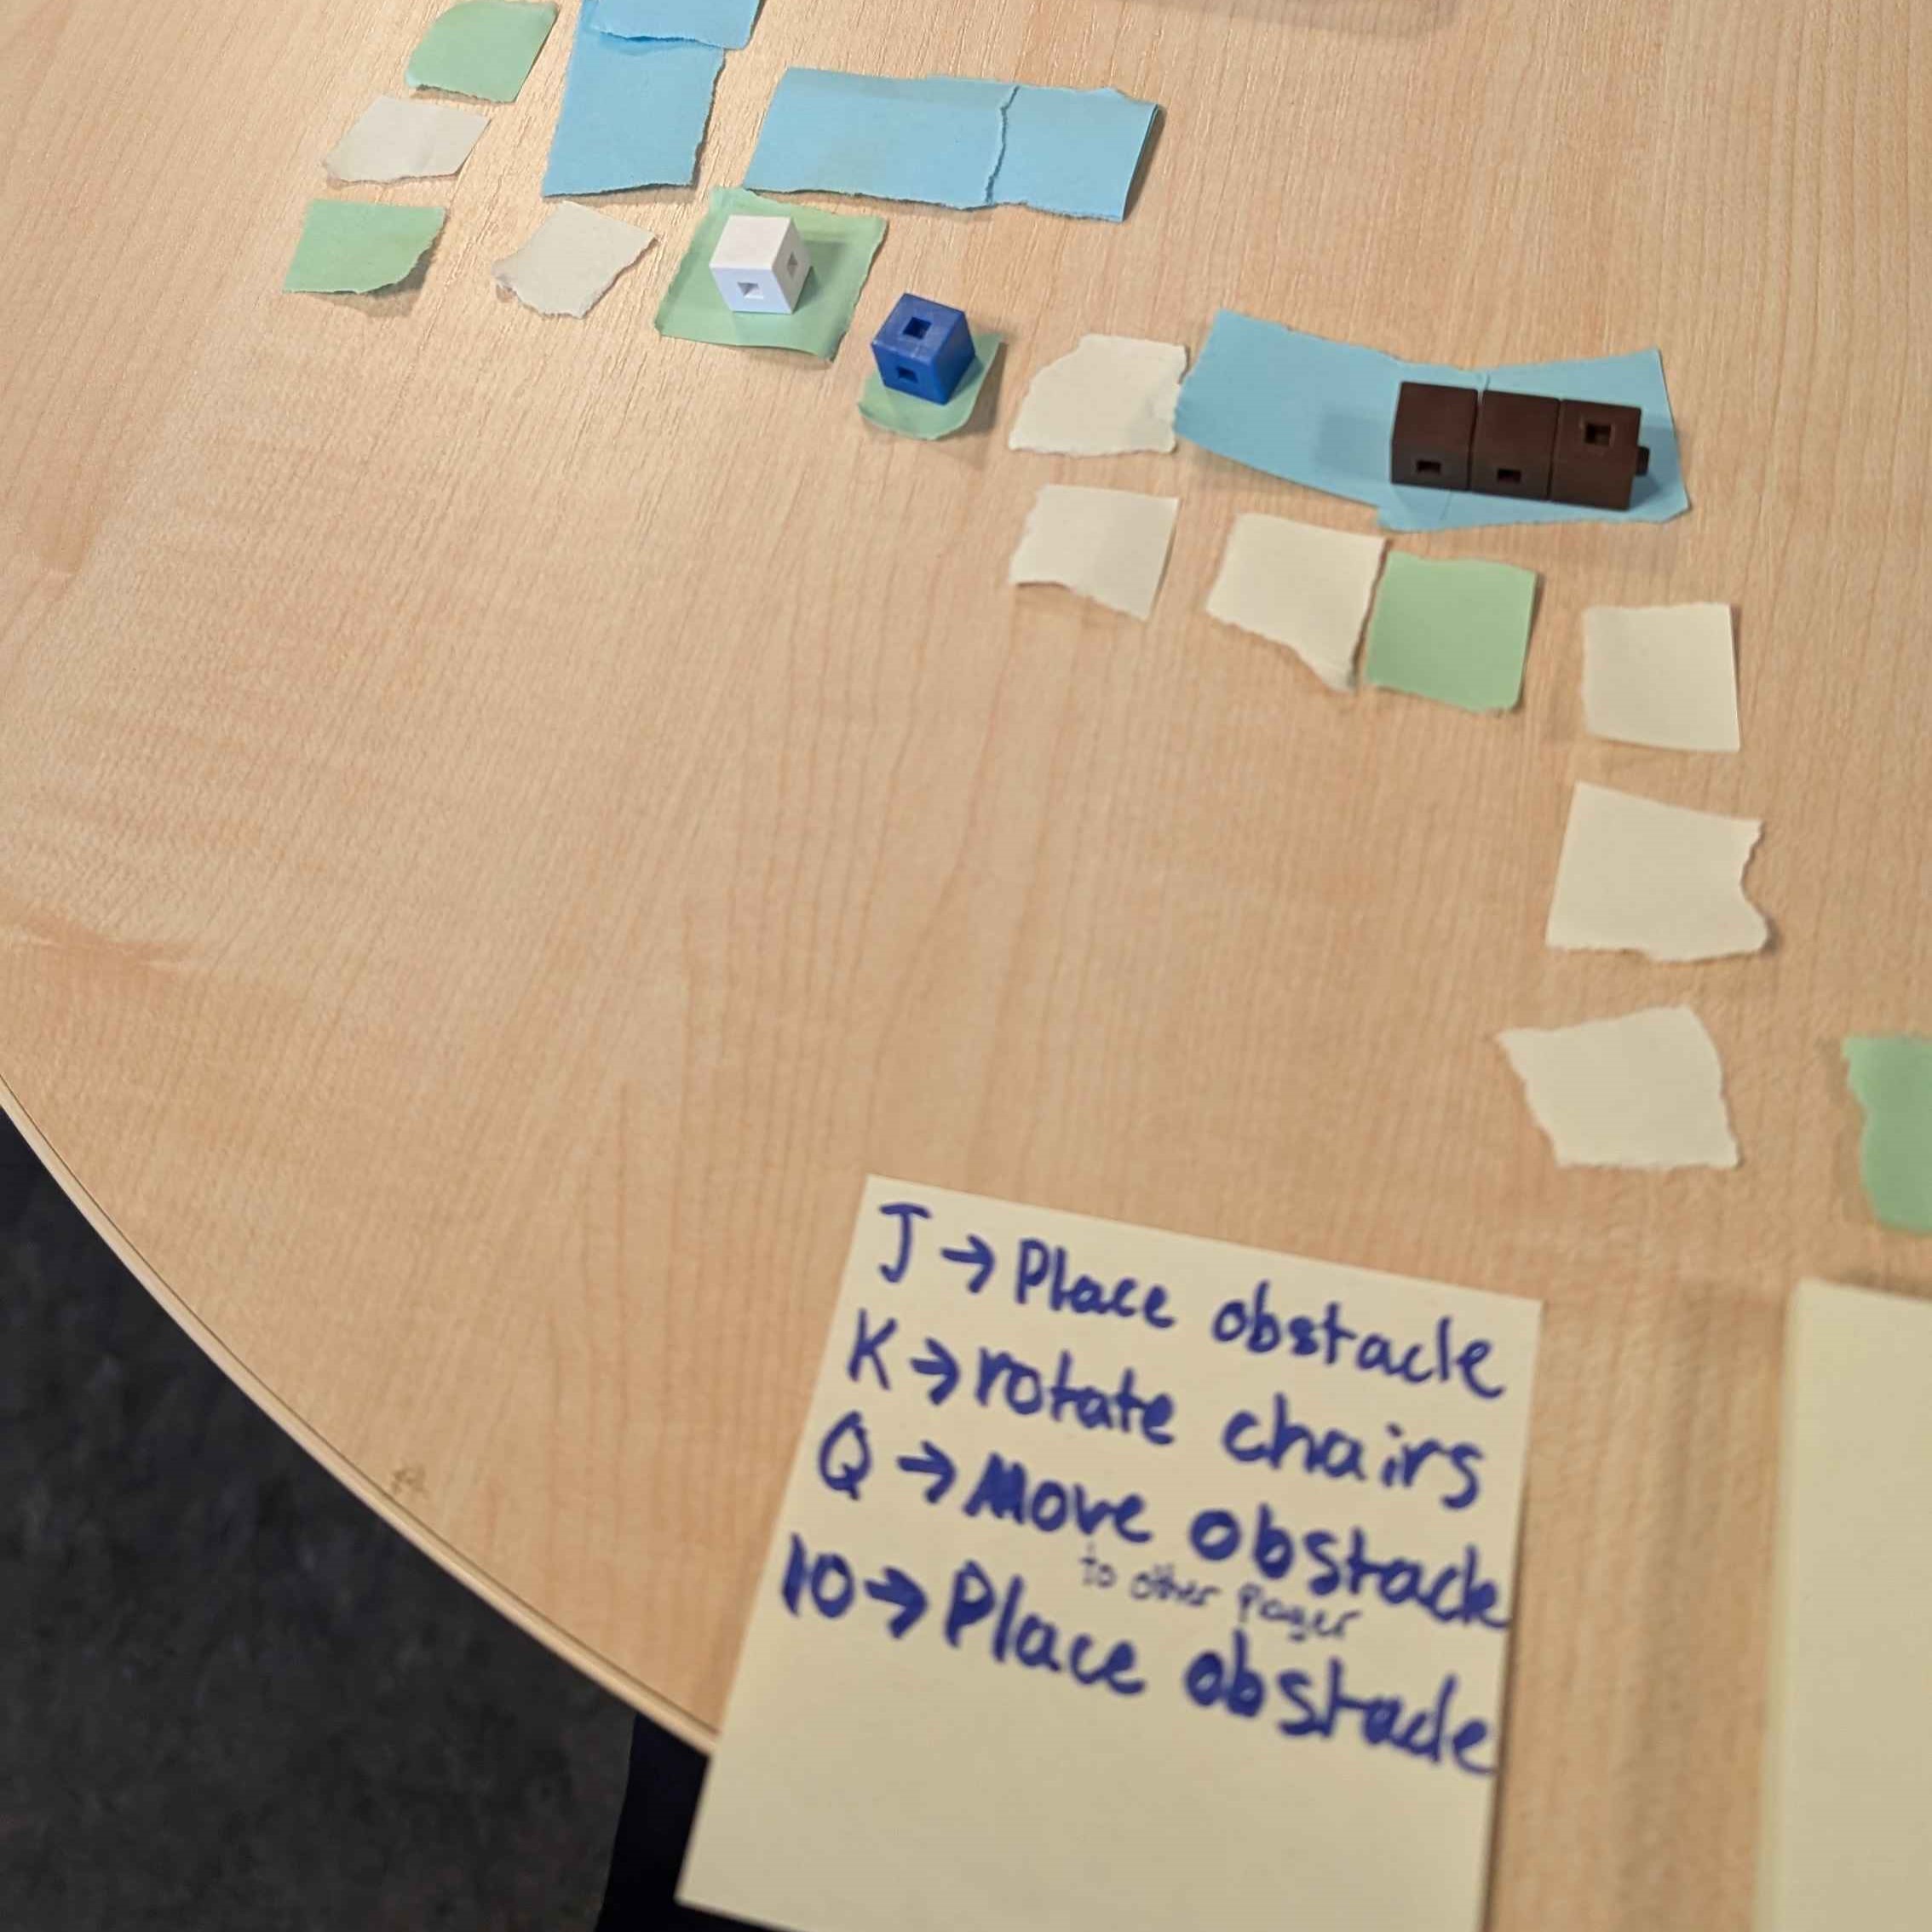 J → Place obstacle
K → rotate chairs
Q → Move obstacle
to other player
10 → Place obstacle